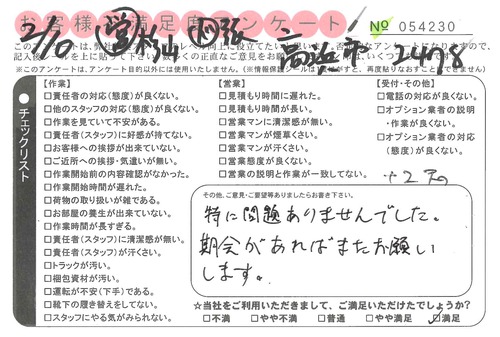 お客様満足度アンケート
№ 054230
2/0
24178
※このアンケートは、アンケート目的以外には使用いたしません。
チェックリスト
【作業】
□責任者の対応(態度)が良くない。
□他のスタッフの対応(態度)が良くない。
□作業を見ていて不安がある。
□責任者(スタッフ)に好感が持てない。
□お客様への挨拶が出来ていない。
□ご近所への挨拶・気遣いが無い。
□作業開始前の内容確認がなかった。
□作業開始時間が遅れた。
□荷物の取り扱いが雑である。
□お部屋の養生が出来ていない。
□作業時間が長すぎる。
□責任者(スタッフ)に清潔感が無い。
□責任者(スタッフ)が汗くさい。
□トラックが汚い。
□梱包資材が汚い。
□運転が不安(下手)である。
□靴下の履き替えをしてない。
□スタッフにやる気がみられない。
【営業】
□見積もり時間に遅れた。
□見積もり時間が長い。
□営業マンに清潔感が無い。
□営業マンが煙草くさい。
□営業マンが汗くさい。
□営業態度が良くない。
□営業の説明と作業が一致してない。
【受付・その他】
□電話の対応が良くない。
□オプション業者の説明
・作業が良くない。
□オプション業者の対応
(態度)が良くない。
その他、ご意見・ご要望等ありましたらお書き下さい。
特に問題ありませんでした。
期会があればまたお願い
します。
☆当社をご利用いただきまして、ご満足いただけたでしょうか?
□不満 □やや不満 □普通 □やや満足 ☑満足